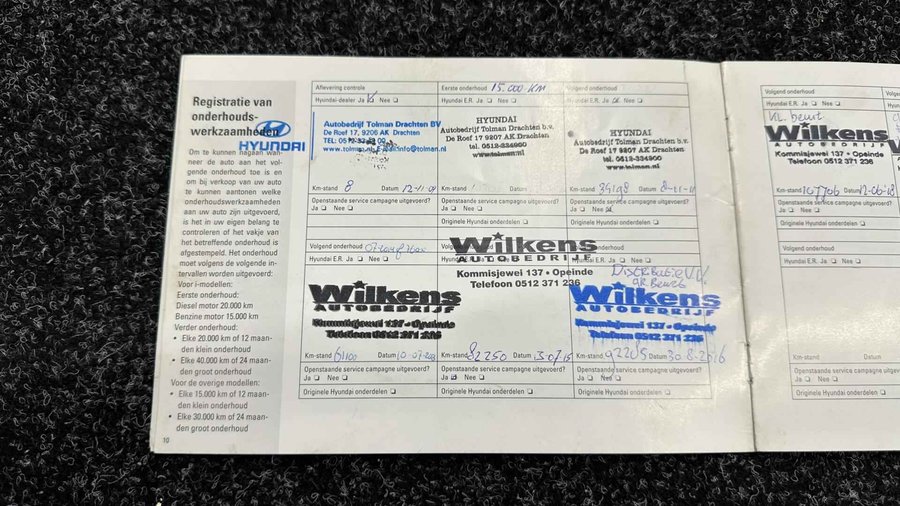 Registratie van
onderhouds-
werkzaamheden
HYUNDAI
Om te kunnen nagaan wan-
neer de auto aan het vol-
gende onderhoud toe is en
om bij verkoop van uw auto
te kunnen aantonen welke
onderhoudswerkzaamheden
aan uw auto zijn uitgevoerd,
is het in uw eigen belang te
controleren of het vakje van
het betreffende onderhoud is
afgestempeld. Het onderhoud
moet volgens de volgende in-
tervallen worden uitgevoerd:
Voor i-modellen:
Eerste onderhoud:
Diesel motor 20.000 km
Benzine motor 15.000 km
Verder onderhoud:
• Elke 20.000 km of 12 maan-
den klein onderhoud
• Elke 40.000 km of 24 maan-
den groot onderhoud
Voor de overige modellen:
• Elke 15.000 km of 12 maan-
den klein onderhoud
• Elke 30.000 km of 24 maan-
den groot onderhoud
10
Aflevering controle
Hyundai-dealer Ja Nee
Autobedrijf Tolman Drachten BV
De Roef 17, 9206 AK Drachten
Km-stand 8 Datum
Openstaande service campagne uitgevoerd?
Ja Nee
Eerste onderhoud 15.000 KM
Hyundai E.R. Ja Nee
HYUNDAI
Autobedrijf Tolman Drachten b.v.
De Roef 17 9207 AK Drachten
tel. 0512-334900
www.tolman.nl
Km-stand Datum
Openstaande service campagne uitgevoerd?
Ja Nee
Originele Hyundai onderdelen
Volgend onderhoud
Hyundai E.R. Ja Nee
HYUNDAI
Autobedrijf Tolman Drachten b.v.
De Roef 17 9207 AK Drachten
tel. 0512-334900
www.tolman.nl
Km-stand Datum
Openstaande service campagne uitgevoerd?
Ja Nee
Originele Hyundai onderdelen
Volgend onderhoud
Hyundai E.R. Ja Nee
Wilkens
AUTOBEDRIJF
Kommisjewei 137 • Opeinde
Telefoon 0512 371 236
Km-stand 61100 Datum
Openstaande service campagne uitgevoerd?
Ja Nee
Originele Hyundai onderdelen
Wilkens
AUTOBEDRIJF
Kommisjewei 137 • Opeinde
Telefoon 0512 371 236
Km-stand 82250 Datum
Openstaande service campagne uitgevoerd?
Ja Nee
Originele Hyundai onderdelen
Hyundai E.R. Ja Nee
gr. Beurt
Wilkens
AUTOBEDRIJF
Kommisjewei 137 • Opeinde
Telefoon 0512 371 236
Km-stand 92205 Datum 30-8-2016
Openstaande service campagne uitgevoerd?
Ja Nee
Originele Hyundai onderdelen
Volgend onderhoud
Hyundai E.R. Ja Nee
KL. beurt
Wilkens
AUTOBEDRIJF
Kommisjewei 137 • Opeinde
Telefoon 0512 371 236
Km-stand 107706 Datum 12-06-18
Openstaande service campagne uitgevoerd?
Ja Nee
Originele Hyundai onderdelen
Volgend onderhoud
Hyundai E.R. Ja Nee
Km-stand Datum
Openstaande service campagne uitgevoerd?
Ja Nee
Originele Hyundai onderdelen